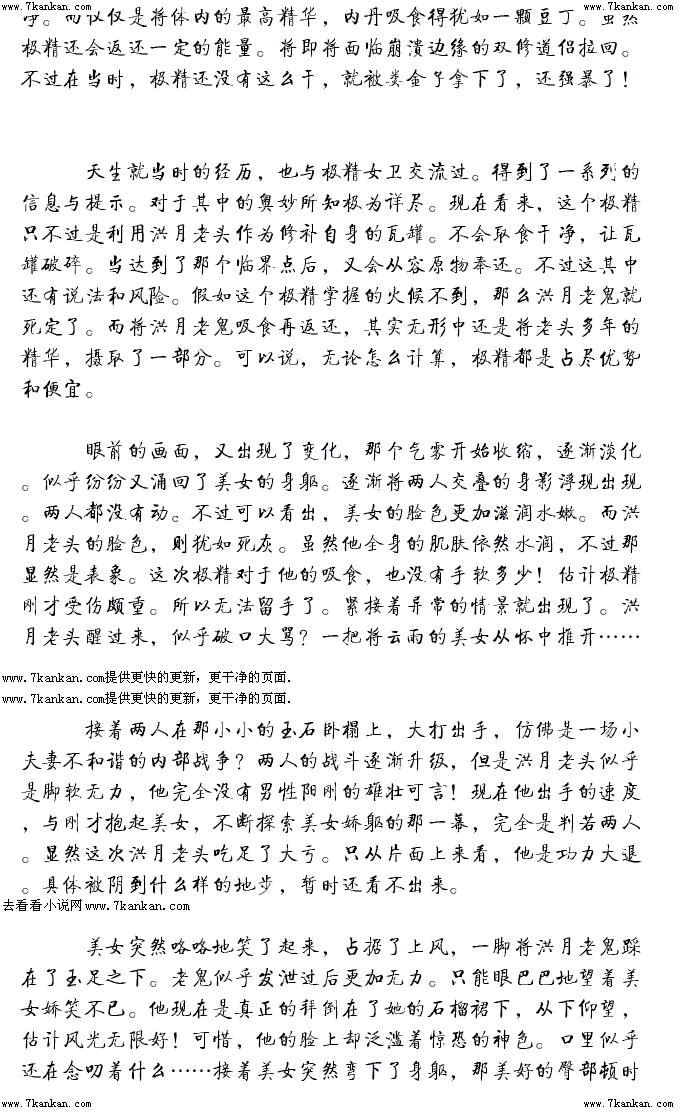 www.7kankan.com www.7kankan.com
净。而仅仅是将体内的最高精华，内丹吸食得犹如一颗豆丁。虽然
极精还会返还一定的能量。将即将面临崩溃边缘的双修道侣拉回。
不过在当时，极精还没有这么干，就被娄金子拿下了，还强暴了！
天生就当时的经历，也与极精女卫交流过。得到了一系列的
信息与提示。对于其中的奥妙所知极为详尽。现在看来，这个极精
只不过是利用洪月老头作为修补自身的瓦罐。不会取食干净，让瓦
罐破碎。当达到了那个临界点后，又会从容原物奉还。不过这其中
还有说法和风险。假如这个极精掌握的火候不到，那么洪月老鬼就
死定了。而将洪月老鬼吸食再返还，其实无形中还是将老头多年的
精华，摄取了一部分。可以说，无论怎么计算，极精都是占尽优势
和便宜。
眼前的画面，又出现了变化，那个气雾开始收缩，逐渐淡化
。似乎纷纷又涌回了美女的身躯。逐渐将两人交叠的身影浮现出现
。两人都没有动。不过可以看出，美女的脸色更加滋润水嫩。而洪
月老头的脸色，则犹如死灰。虽然他全身的肌肤依然水润，不过那
显然是表象。这次极精对于他的吸食，也没有手软多少！估计极精
刚才受伤颇重。所以无法留手了。紧接着异常的情景就出现了。洪
月老头醒过来，似乎破口大骂？一把将云雨的美女从怀中推开……
www.7kankan.com提供更快的更新，更干净的页面.
www.7kankan.com提供更快的更新，更干净的页面.
接着两人在那小小的玉石卧榻上，大打出手，仿佛是一场小
夫妻不和谐的内部战争？两人的战斗逐渐升级，但是洪月老头似乎
是脚软无力，他完全没有男性阳刚的雄壮可言！现在他出手的速度
，与刚才抱起美女，不断探索美女娇躯的那一幕，完全是判若两人
。显然这次洪月老头吃足了大亏。只从片面上来看，他是功力大退
。具体被阴到什么样的地步，暂时还看不出来。
去看看小说网www.7kankan.com
美女突然咯咯地笑了起来，占据了上风，一脚将洪月老鬼踩
在了玉足之下。老鬼似乎发泄过后更加无力。只能眼巴巴地望着美
女娇笑不已。他现在是真正的拜倒在了她的石榴裙下，从下仰望，
估计风光无限好！可惜，他的脸上却泛滥着惊恐的神色。口里似乎
还在念叨着什么……接着美女突然弯下了身躯，那美好的臀部顿时
www.7kankan.com www.7kankan.com